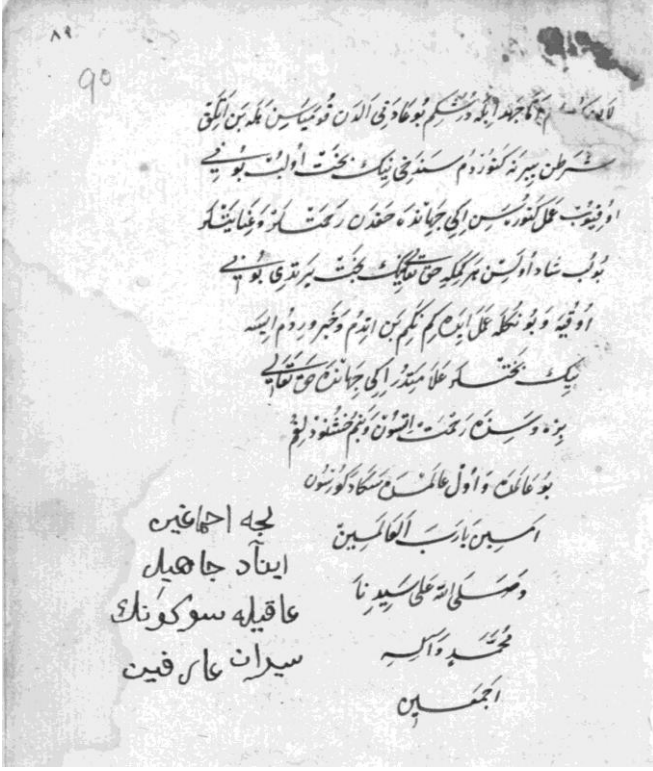 ٨٩
90
جهد ايله دُرُشكم بُو عَادتى اَلدَن قُومياسِن بلكه بَن
شرطن ييرنه كتوردُم سندخى نيك بخت اُولب بُونى
اوُقيوب عمل كتوره سِن اِكى جهانده حقدن رحمتلو و عنايتلو
بُولب شاد اُولسن هر كمكه حق تعالى نيك بخت يرتدى بُونى
اوُقيه و بونكله عمل ايده كم نكم بَن اتدُم و خبر وردُم ايسه
نيك بختلو علامتدر اِكى جهانده حق تعالى
بزه و سزه رحمت اتسون و بنم خشنودلغم
بو عالمده و اوُل عالمده سكا دكورسُون
امين يا رَبَّ العالمين
وصلى الله على سيدنا
محمد وآله
اجمعين
لجه احماغين
ايناد جاهيل
عاقيله سوكونك
سيران عارفين